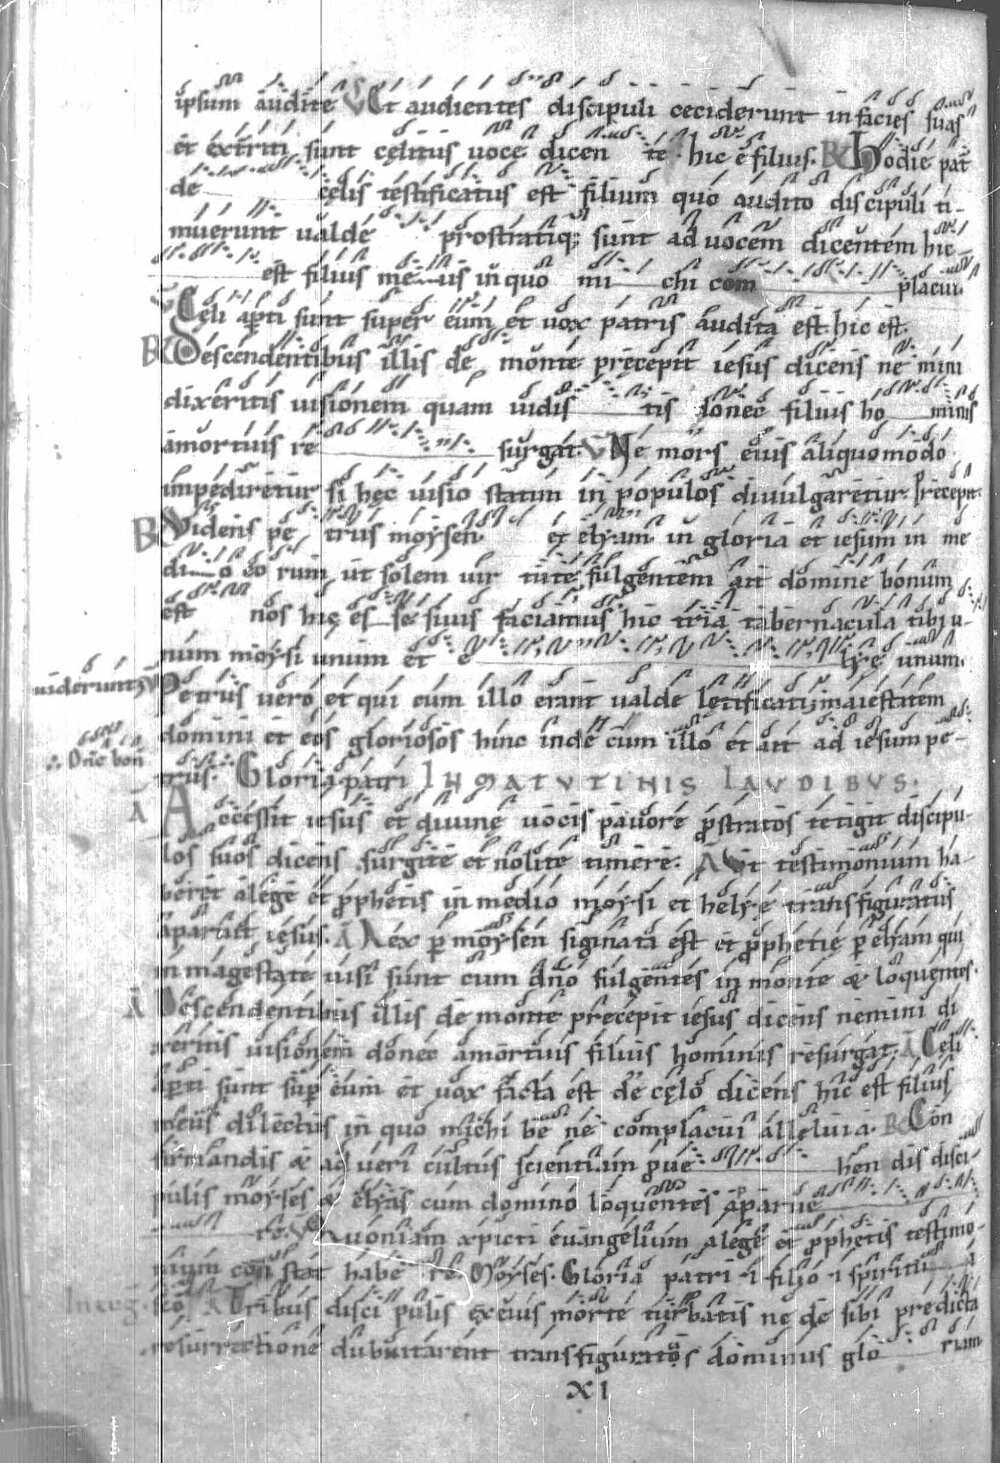 ipsum audite V Et audientes discipuli ceciderunt in facies suas
et exterriti sunt celitus uoce dicen te hic e filius. R Hodie pat
de celis testificatus est filium quo audito discipuli ti-
muerunt ualde prostratiq; sunt ad uocem dicentem hic
est filius me us in quo mi chi com placui.
V Celi apti sunt super eum et uox patris audita est hic est.
R Descendentibus illis de monte precepit iesus dicens ne mini
dixeritis uisionem quam uidis tis donec filius ho minis
amortuis re surgat. V Ne mors eius aliquomodo
impediretur si hec uisio statim in populos diuulgaretur. Precepit.
R Videns pe trus moysen et elyam in gloria et iesum in me
di o eo rum ut solem uir tute fulgentem ait domine bonum
est nos hic es se si uis faciamus hic tria tabernacula tibi u-
num moysi unum et e lye unum.
uiderunt V Petrus uero et qui cum illo erant ualde letificati maiestatem
domini et eos gloriosos hinc inde cum illo et ait ad iesum pe-
Dne bon
trus. Gloria patri IN MATUTINIS LAUDIBUS.
A Accessit iesus et diuine uocis pauore pstratos tetigit discipu-
los suos dicens surgite et nolite timere. A Vt testimonium ha-
beret alege et pphetis in medio moysi et helye transfiguratus
aparuit iesus. A Lex p moysen signata est et pphetie p elyam qui
in magestate uisi sunt cum dno fulgentes in monte & loquentes.
A Descendentibus illis de monte precepit iesus dicens nemini di
xeritis uisionem donec amortuis filius hominis resurgat. A Celi
apti sunt sup eum et uox facta est de celo dicens hic est filius
meus dilectus in quo michi be ne complacui alleluia. R Con
firmandis & ad ueri cultus scientiam pue hen dis disci-
pulis moyses & elyas cum domino loquentes aparue
re. V Quoniam xpicti euangelium alege et pphetis testimo-
nium con stat habe re. Moyses. Gloria patri i filio i spiritu
sco A Tribus disci pulis exeius morte turbatis ne de sibi predicta
resurrectione dubuitarent transfiguratos dominus glo riam
XI